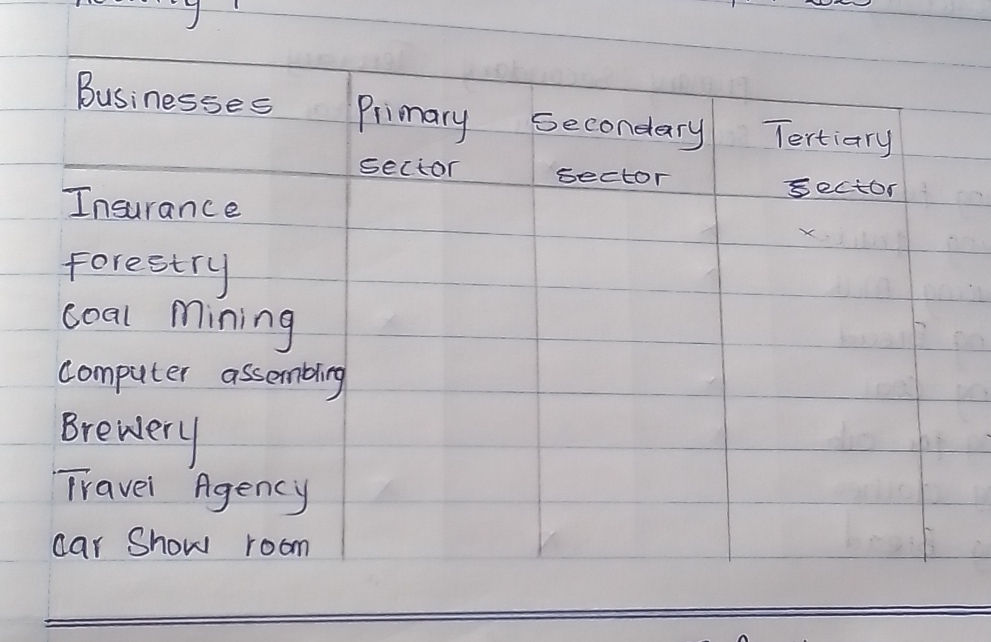 Businesses Primary sector Secondary sector Tertiary sector
Insurance x
Forestry
Coal Mining
Computer assembling
Brewery
Travel Agency
Car Show room